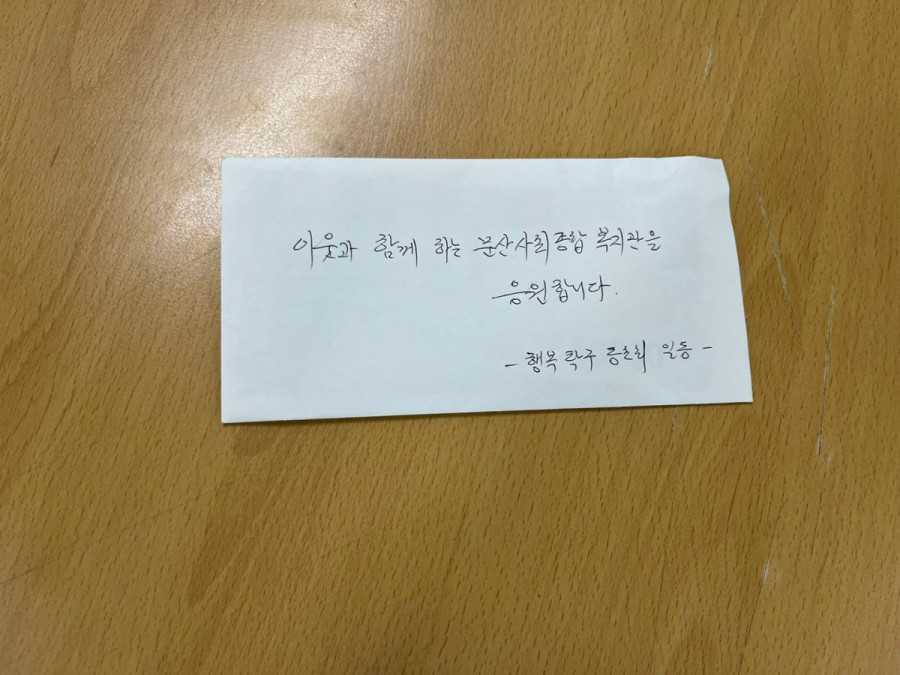 이웃과 함께 하는 문산사회종합 복지관을
응원합니다.
- 행복 탁구 동호회 일동 -